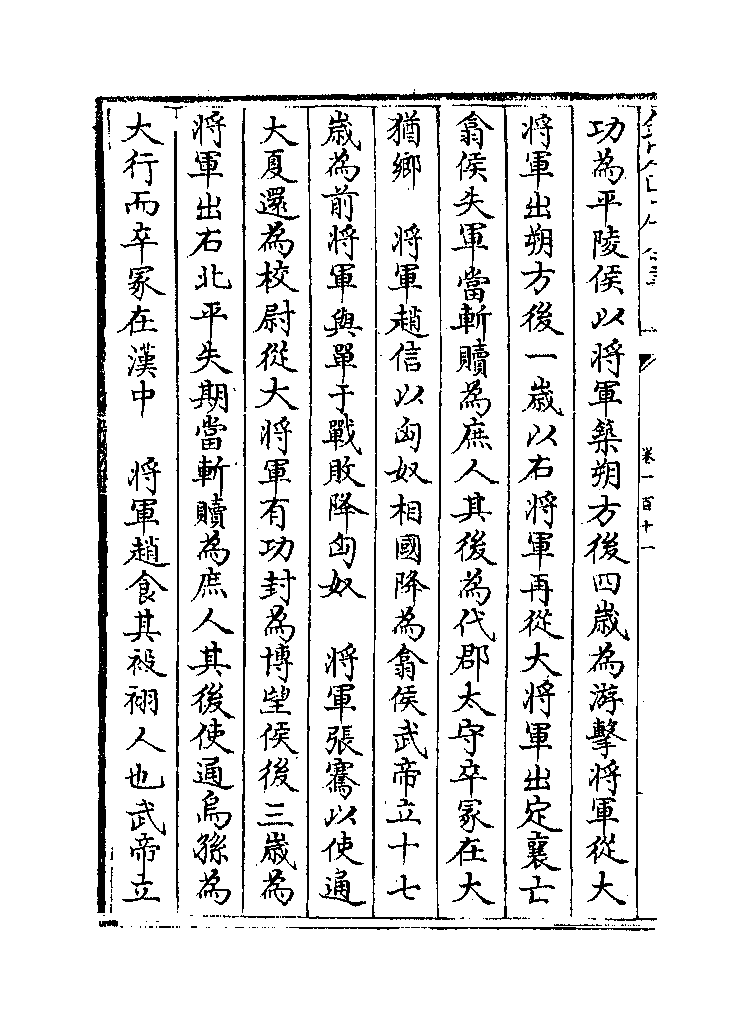 卷一百十一
功為平陵侯以将軍築朔方後四歳為游擊将軍從大
将軍出朔方後一歳以右将軍再從大将軍出定襄亡
翕侯失軍當斬贖為庶人其後為代郡太守卒冢在大
猶鄉　将軍趙信以匈奴相國降為翕侯武帝立十七
歳為前将軍與單于戰敗降匈奴　将軍張騫以使通
大夏還為校尉從大将軍有功封為博望侯後三歳為
将軍出右北平失期當斬贖為庶人其後使通烏孫為
大行而卒冢在漢中　将軍趙食其祋祤人也武帝立